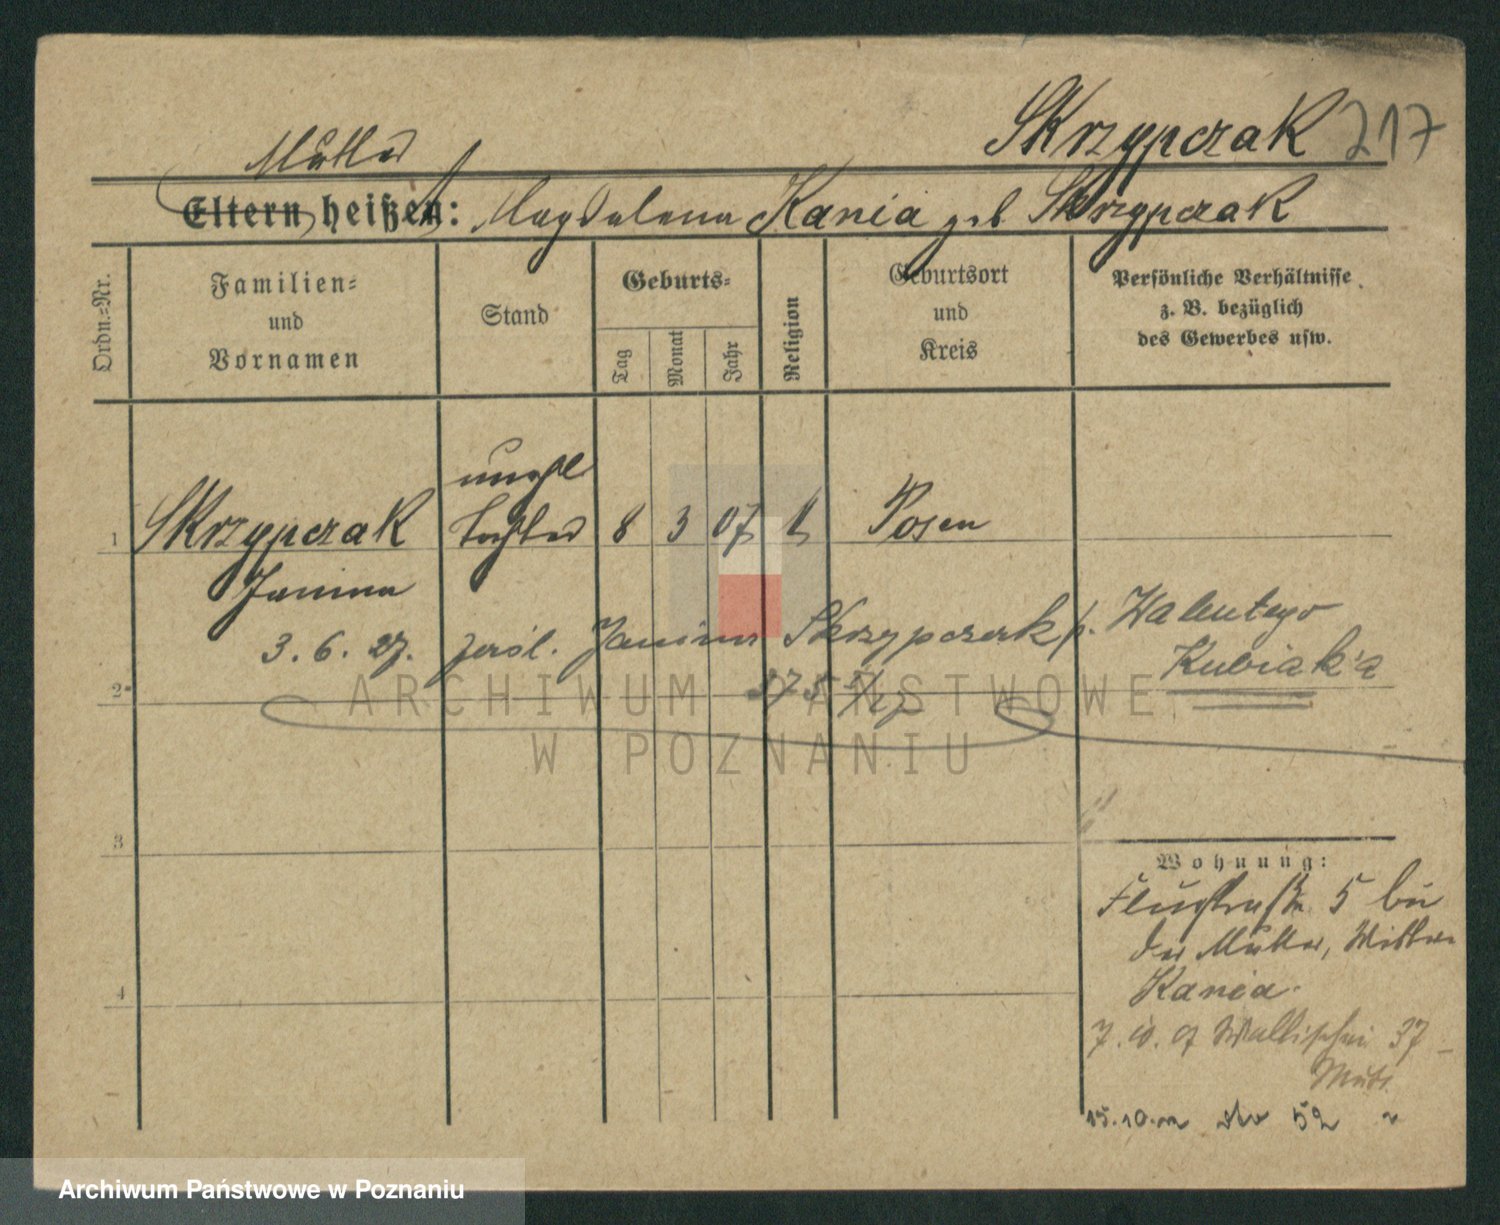 Skrzypczak 217
Mutter
Eltern heißen: Magdalena Kania geb Skrzypczak
Ordn.-Nr.
Familien-
und
Vornamen
Stand
Geburts-
Tag
Monat
Jahr
Religion
Geburtsort
und
Kreis
Persönliche Verhältnisse
z. B. bezüglich
des Gewerbes usw.
unehl
1 Skrzypczak Tochter 8 3 07 k Posen
Janina
3. 6. 27. Janina Skrzypczak p. Walentego
Kubiak'a
2
ARCHIWUM PAŃSTWOWE
W POZNANIU
3
Wohnung:
5 bei
der Mutter, Witwe
Kania.
4
7. 10. 07 Wallischei 37
Mutt.
15.10. 52
Archiwum Państwowe w Poznaniu